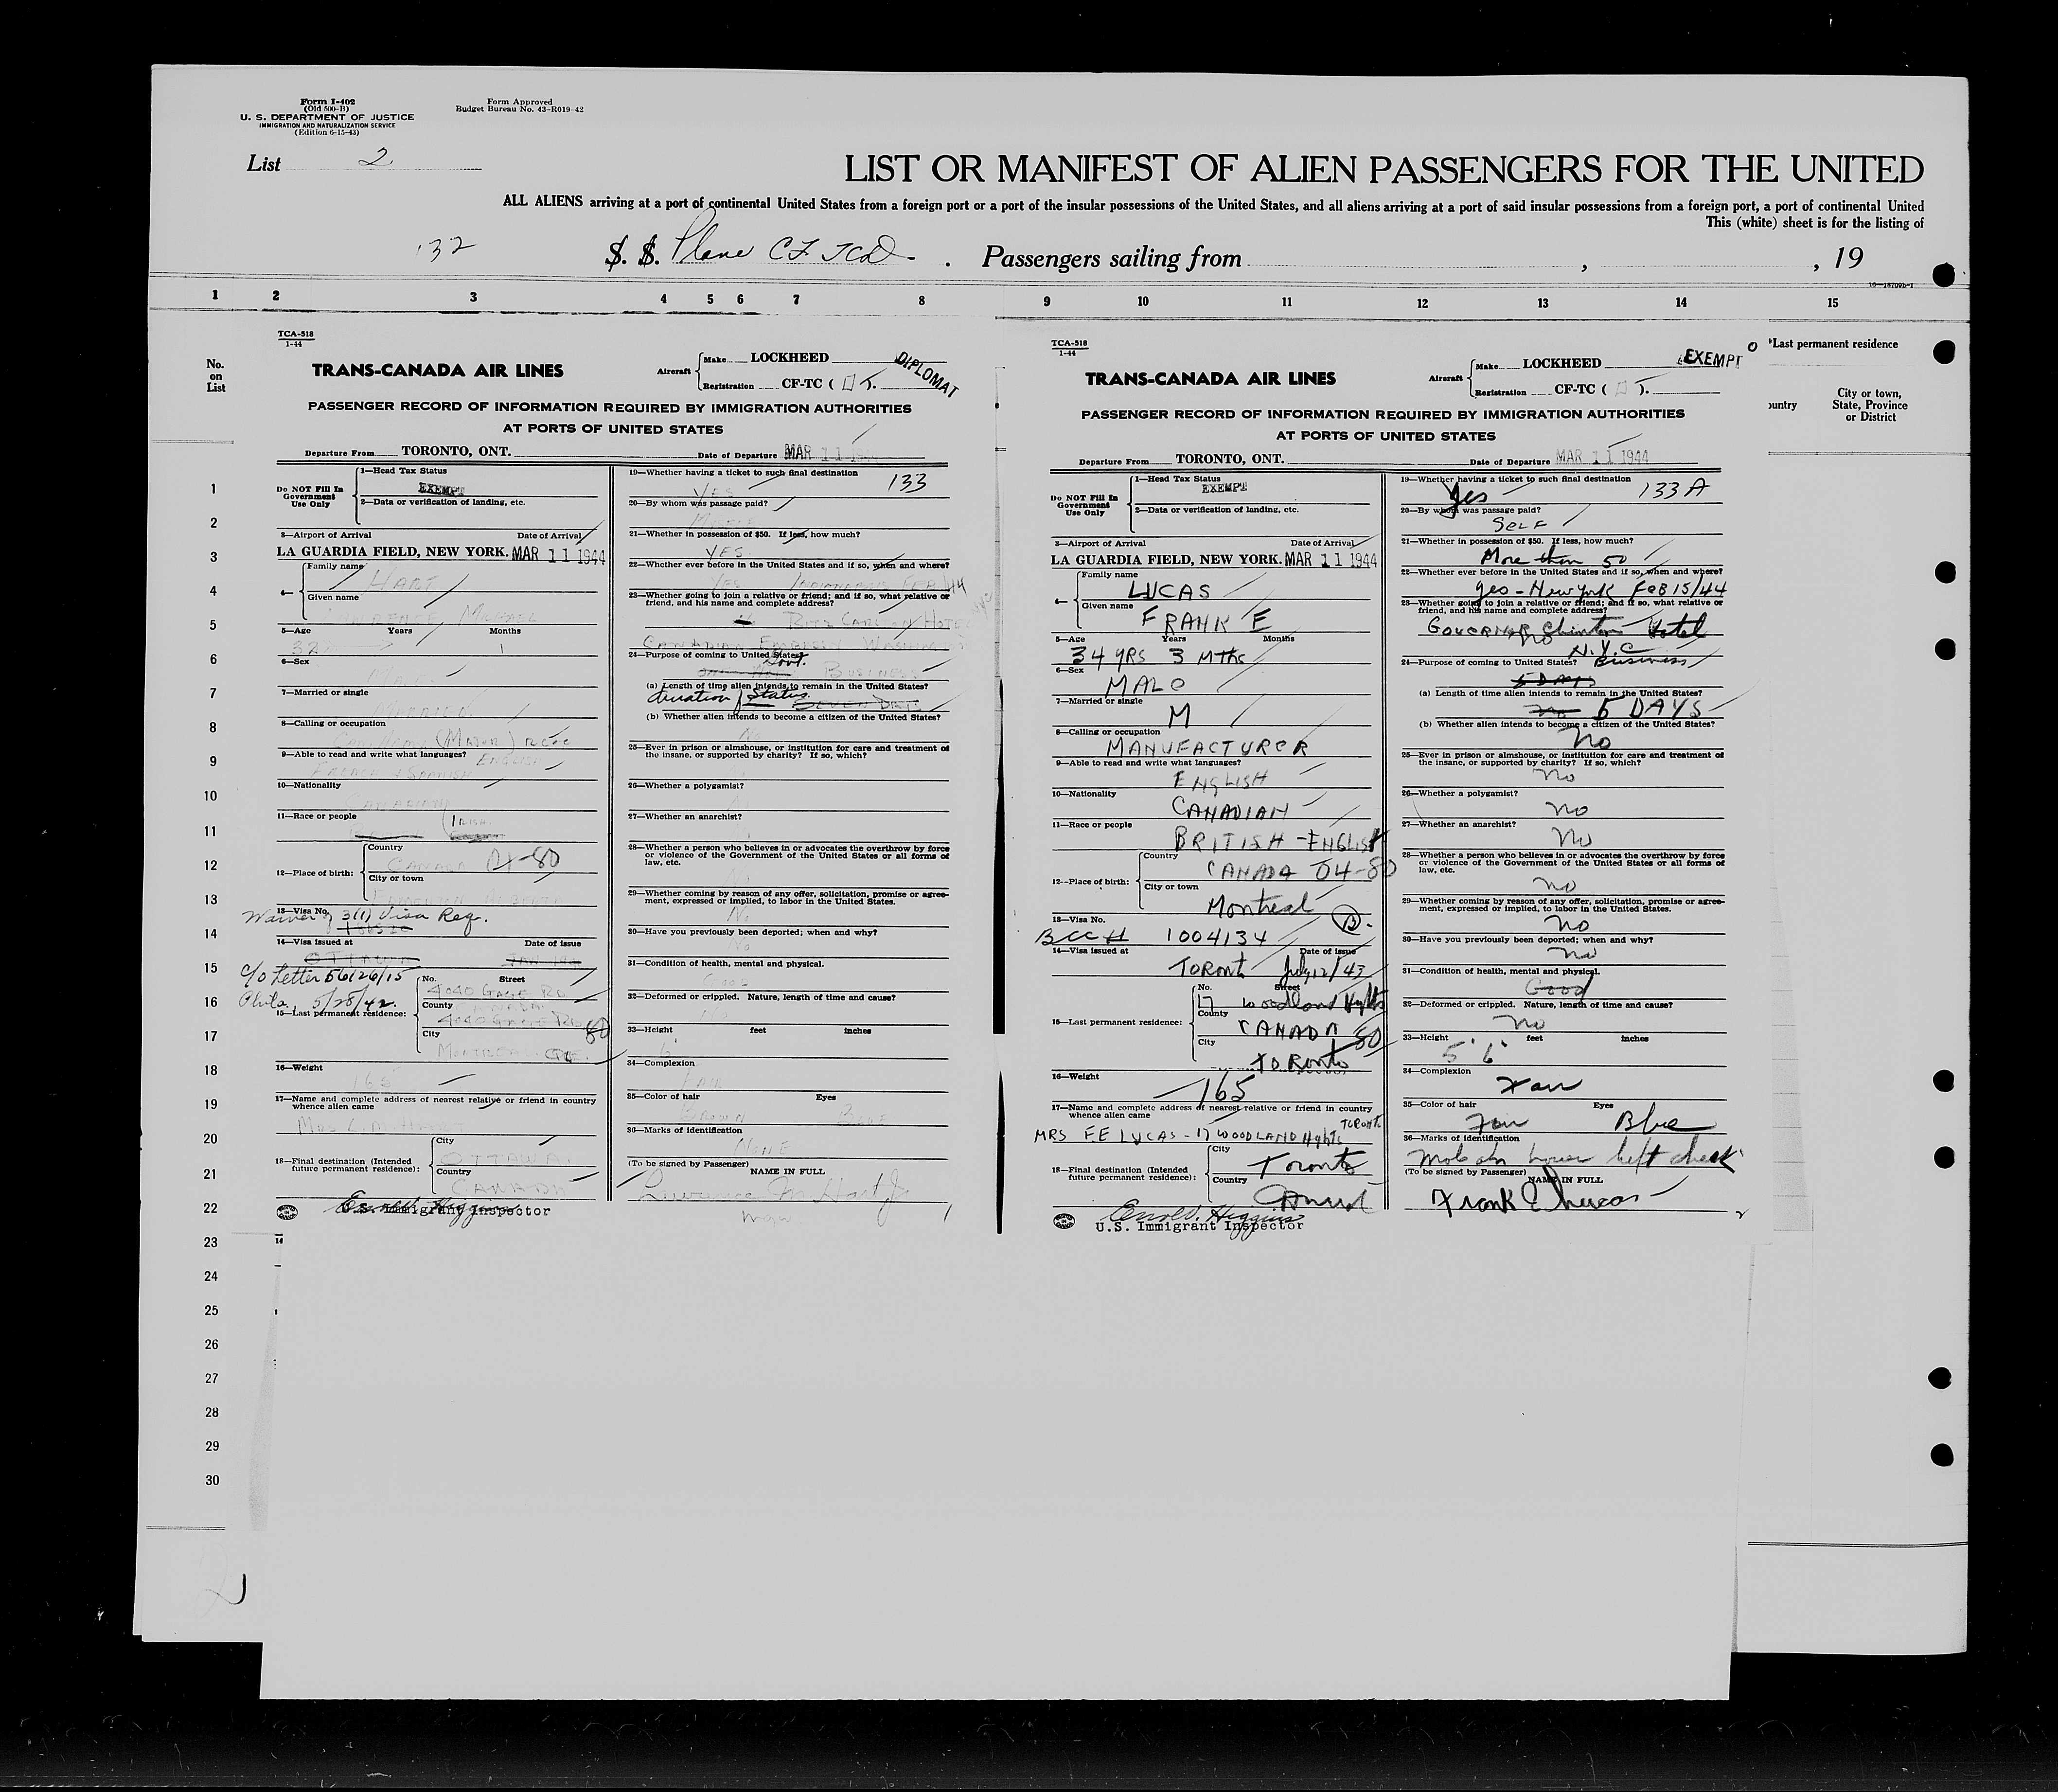 Form I-402
(Old 500-B)
U. S. DEPARTMENT OF JUSTICE
IMMIGRATION AND NATURALIZATION SERVICE
(Edition 6-15-43)
Form Approved
Budget Bureau No. 43-R019-42
List 2
LIST OR MANIFEST OF ALIEN PASSENGERS FOR THE UNITED
ALL ALIENS arriving at a port of continental United States from a foreign port or a port of the insular possessions of the United States, and all aliens arriving at a port of said insular possessions from a foreign port, a port of continental United
This (white) sheet is for the listing of
132 S. S. Plane CF TCD. Passengers sailing from , , 19
16-18709b-1
1 2 3 4 5 6 7 8 9 10 11 12 13 14 15
No.
on
List
1
2
3
4
5
6
7
8
9
10
11
12
13
14
15
16
17
18
19
20
21
22
23
24
25
26
27
28
29
30
TCA-518
1-44
TRANS-CANADA AIR LINES
Aircraft Make LOCKHEED
Registration CF-TC ( T.
DIPLOMAT
PASSENGER RECORD OF INFORMATION REQUIRED BY IMMIGRATION AUTHORITIES
AT PORTS OF UNITED STATES
Departure From TORONTO, ONT. Date of Departure MAR 11 1944
Do NOT Fill In
Government
Use Only
1—Head Tax Status
EXEMPT
2—Data or verification of landing, etc.
3—Airport of Arrival Date of Arrival
LA GUARDIA FIELD, NEW YORK. MAR 11 1944
4— Family name HART
Given name LAWRENCE MICHAEL
5—Age Years Months
32 1
6—Sex
MALE
7—Married or single
MARRIED
8—Calling or occupation
(MAJOR)
9—Able to read and write what languages? ENGLISH
FRENCH & SPANISH
10—Nationality
CANADIAN
11—Race or people
IRISH
12—Place of birth: Country
CANADA 04-80
City or town
13—Visa No.
Waiver of 3(1) Visa Req.
14—Visa issued at Date of issue
OTTAWA
c/o Letter 56126/15
Phila, 5/28/42.
15—Last permanent residence: No. Street
4040 GAGE RD
County
4040 GAGE RD 80
City
MONTREAL QUE.
16—Weight
165
17—Name and complete address of nearest relative or friend in country
whence alien came
MRS L. M. HART
18—Final destination (Intended
future permanent residence): City
OTTAWA
Country
CANADA
U.S. Immigrant Inspector
19—Whether having a ticket to such final destination
YES 133
20—By whom was passage paid?
21—Whether in possession of $50. If less, how much?
YES
22—Whether ever before in the United States and if so, when and where?
YES FEB /44
23—Whether going to join a relative or friend; and if so, what relative or
friend, and his name and complete address?
RITZ CARLTON HOTEL
CANADIAN EMBASSY
24—Purpose of coming to United States?
Govt. BUSINESS
(a) Length of time alien intends to remain in the United States?
duration of Status SEVEN DAYS
(b) Whether alien intends to become a citizen of the United States?
No
25—Ever in prison or almshouse, or institution for care and treatment of
the insane, or supported by charity? If so, which?
26—Whether a polygamist?
27—Whether an anarchist?
28—Whether a person who believes in or advocates the overthrow by force
or violence of the Government of the United States or all forms of
law, etc.
29—Whether coming by reason of any offer, solicitation, promise or agree-
ment, expressed or implied, to labor in the United States.
No
30—Have you previously been deported; when and why?
No
31—Condition of health, mental and physical.
GOOD
32—Deformed or crippled. Nature, length of time and cause?
No
33—Height feet inches
6'
34—Complexion
FAIR
35—Color of hair Eyes
BROWN BLUE
36—Marks of identification
NONE
(To be signed by Passenger) NAME IN FULL
Lawrence M. Hart Jr
Major
TCA-518
1-44
TRANS-CANADA AIR LINES
Aircraft Make LOCKHEED
Registration CF-TC ( ).
EXEMPT
PASSENGER RECORD OF INFORMATION REQUIRED BY IMMIGRATION AUTHORITIES
AT PORTS OF UNITED STATES
Departure From TORONTO, ONT. Date of Departure MAR 11 1944
Do NOT Fill In
Government
Use Only
1—Head Tax Status
EXEMPT
2—Data or verification of landing, etc.
3—Airport of Arrival Date of Arrival
LA GUARDIA FIELD, NEW YORK. MAR 11 1944
4— Family name
LUCAS
Given name
FRANK E
5—Age Years Months
34 YRS 3 MTHS
6—Sex
MALE
7—Married or single
M
8—Calling or occupation
MANUFACTURER
9—Able to read and write what languages?
ENGLISH
10—Nationality
CANADIAN
11—Race or people
BRITISH - ENGLISH
12—Place of birth: Country
CANADA 04-80
City or town
Montreal
13—Visa No. B.
BCC# 1004134
14—Visa issued at Date of issue
TORONTO July 12/43
15—Last permanent residence: No. Street
17 Woodland Hghts
County
CANADA 80
City
TORONTO
16—Weight
165
17—Name and complete address of nearest relative or friend in country
whence alien came
MRS FE LUCAS - 17 WOODLAND Hghts TORONTO
18—Final destination (Intended
future permanent residence): City
Toronto
Country
U.S. Immigrant Inspector
19—Whether having a ticket to such final destination
Yes 133 A
20—By whom was passage paid?
SELF
21—Whether in possession of $50. If less, how much?
More than 50
22—Whether ever before in the United States and if so, when and where?
yes - New York FEB 15/44
23—Whether going to join a relative or friend; and if so, what relative or
friend, and his name and complete address?
GOVERNOR Clinton Hotel
no N.Y.C
24—Purpose of coming to United States? Business
5 DAYS
(a) Length of time alien intends to remain in the United States?
no 5 DAYS
(b) Whether alien intends to become a citizen of the United States?
no
25—Ever in prison or almshouse, or institution for care and treatment of
the insane, or supported by charity? If so, which?
no
26—Whether a polygamist?
no
27—Whether an anarchist?
No
28—Whether a person who believes in or advocates the overthrow by force
or violence of the Government of the United States or all forms of
law, etc.
no
29—Whether coming by reason of any offer, solicitation, promise or agree-
ment, expressed or implied, to labor in the United States.
no
30—Have you previously been deported; when and why?
no
31—Condition of health, mental and physical.
Good
32—Deformed or crippled. Nature, length of time and cause?
no
33—Height feet inches
5' 6"
34—Complexion
Fair
35—Color of hair Eyes
Fair Blue
36—Marks of identification
Mole on lower left cheek
(To be signed by Passenger) NAME IN FULL
Frank E Lucas
*Last permanent residence
ountry
City or town,
State, Province
or District